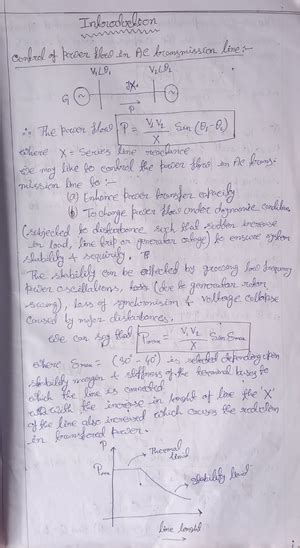 Introduction
Control of power flow in AC transmission line:-
V₁∠θ₁ V₂∠θ₂
G jX
P
∴ The power flow P = V₁V₂/X Sin (θ₁-θ₂)
where X = Series line
we may like to control the power flow in AC trans-
mission line to :-
(a) Enhance power transfer capacity
(b) To change power flow under dynamic condition
(subjected to disturbance such that sudden increase
in load, line trip or generator outage) to ensure system
stability & security.
The stability can be affected by growing low frequency
power oscillations, (due to generator rotor
swing), loss of synchronism & voltage collapse
caused by major disturbances.
we can say that Pmax = V₁V₂/X Sin δmax
where δmax = (30°-40°) is selected depending upon
stability margin & stiffness of the terminal buses to
which the line is connected
with the increase in length of line the 'X'
of the line also increased which causes the reduction
in transferred power.
P
Thermal
limit
Pmax
Stability limit
line length